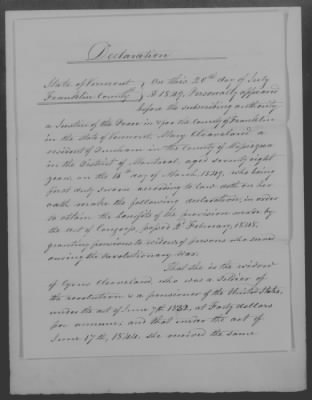 Declaration
State of Vermont } On this 20th day of July
Franklin County } A 1849, Personally appeared
before the subscribing authority
a Justice of the Peace in & for the County of Franklin
in the state of Vermont, Mary Cleaveland a
resident of Dunham in the County of Missisquoi
in the District of Montreal, aged seventy eight
years, on the 16th day of March, 1849, who being
first duly sworn according to law doth on her
oath make the following declaration, in order
to obtain the benefits of the provision made by
the act of Congress, passed 2d February, 1848,
granting pensions to widows of persons who served
during the revolutionary war.
That she is the widow
of Cyrus Cleaveland, who was a soldier of
the revolution & a pensioner of the United States,
under the act of June 7th 1832, at Forty dollars
per annum; and that under the act of
June 17th, 1844, she received the same